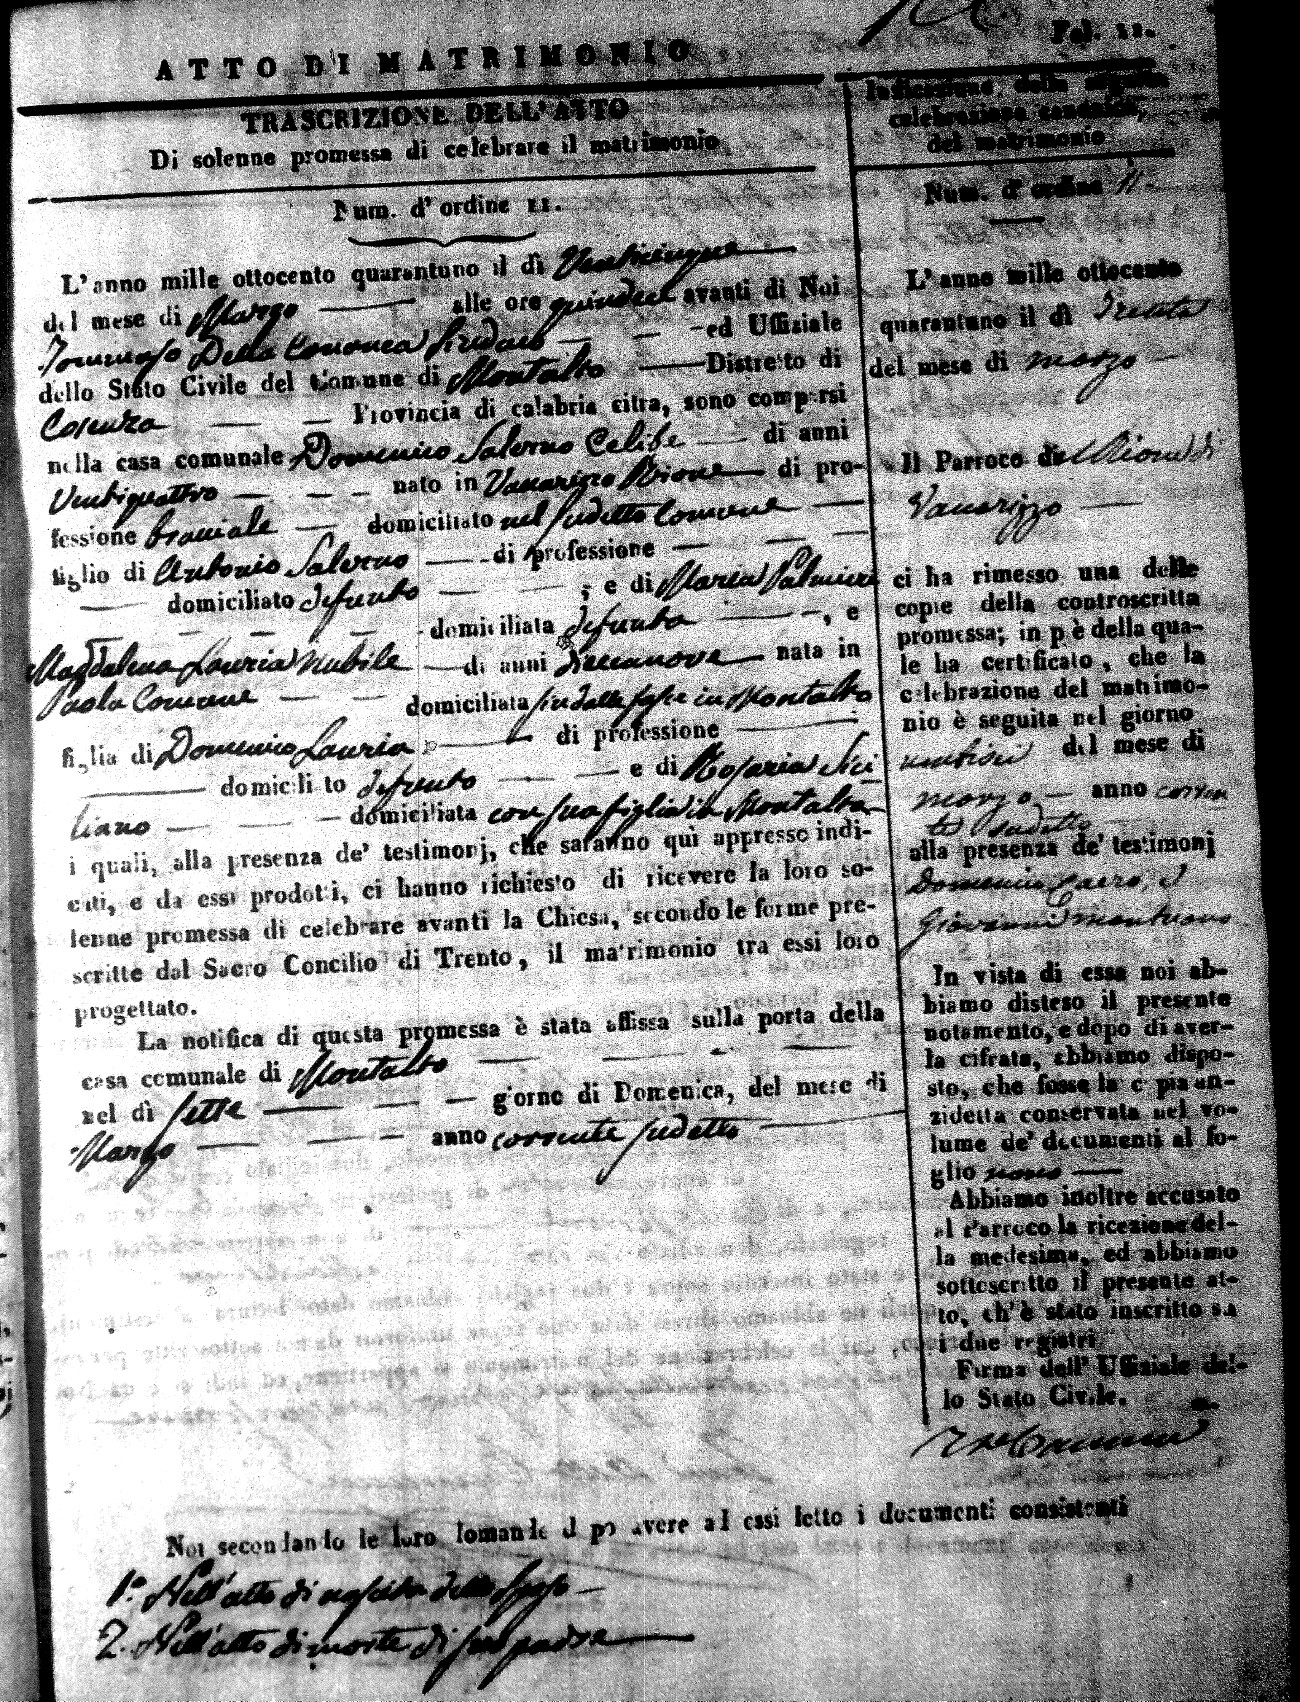 Fol. 11.
ATTO DI MATRIMONIO
TRASCRIZIONE DELL'ATTO
Di solenne promessa di celebrare il matrimonio
Num. d' ordine 11.
L'anno mille ottocento quarantuno il dì Venticinque
del mese di Marzo alle ore quindeci avanti di Noi
Tommaso Della Cononca Sindaco ed Uffiziale
dello Stato Civile del Comune di Montalto Distretto di
Cosenza Provincia di calabria citra, sono comparsi
nella casa comunale Domenico Salerno Celibe di anni
Ventiquattro nato in Vaccarizzo Rione di pro-
fessione bracciale domiciliato nel sudetto Comune
figlio di Antonio Salerno di professione
domiciliato defunto ; e di Maria Palmieri
domiciliata defunta , e
Magdalena Lauria Nubile di anni diecianove nata in
Paola Comune domiciliata sin dalle fasce in Montalto
figlia di Domenico Lauria di professione
domicilito defunto e di Rosaria Sici
liano domiciliata con sua figlia in Montalto
i quali, alla presenza de' testimonj, che saranno quì appresso indi-
cati, e da essi prodotti, ci hanno richiesto di ricevere la loro so-
lenne promessa di celebrare avanti la Chiesa, secondo le forme pre-
scritte dal Sacro Concilio di Trento, il matrimonio tra essi loro
progettato.
La notifica di questa promessa è stata affissa sulla porta della
casa comunale di Montalto
nel dì sette giorno di Domenica, del mese di
Marzo anno corrente sudetto
Noi secondando le loro domande d po avere ad essi letto i documenti consistenti
1.° Nell'atto di nascita dello sposo
2. Nell'atto di morte di suo padre
Indicazione della seguita
celebrazione canonica,
del matrimonio
Num. d' ordine 11.
L'anno mille ottocento
quarantuno il dì Trenta
del mese di marzo
Il Parroco del Rione di
Vaccarizzo
ci ha rimesso una delle
copie della controscritta
promessa; in p è della qua-
le ha certificato, che la
celebrazione del matrimo-
nio è seguita nel giorno
ventisei del mese di
marzo anno corren
te sudetto
alla presenza de' testimonj
Domenico, e
Giovanni
In vista di essa noi ab-
biamo disteso il presente
notamento, e dopo di aver-
la cifrata, abbiamo dispo-
sto, che fosse la c pia an-
zidetta conservata nel vo-
lume de' documenti al fo-
glio nono
Abbiamo inoltre accusato
al Parroco la ricezione del-
la medesima, ed abbiamo
sottoscritto il presente at-
to, ch'è stato inscritto su
i due registri
Firma dell' Uffiziale del-
lo Stato Civile.